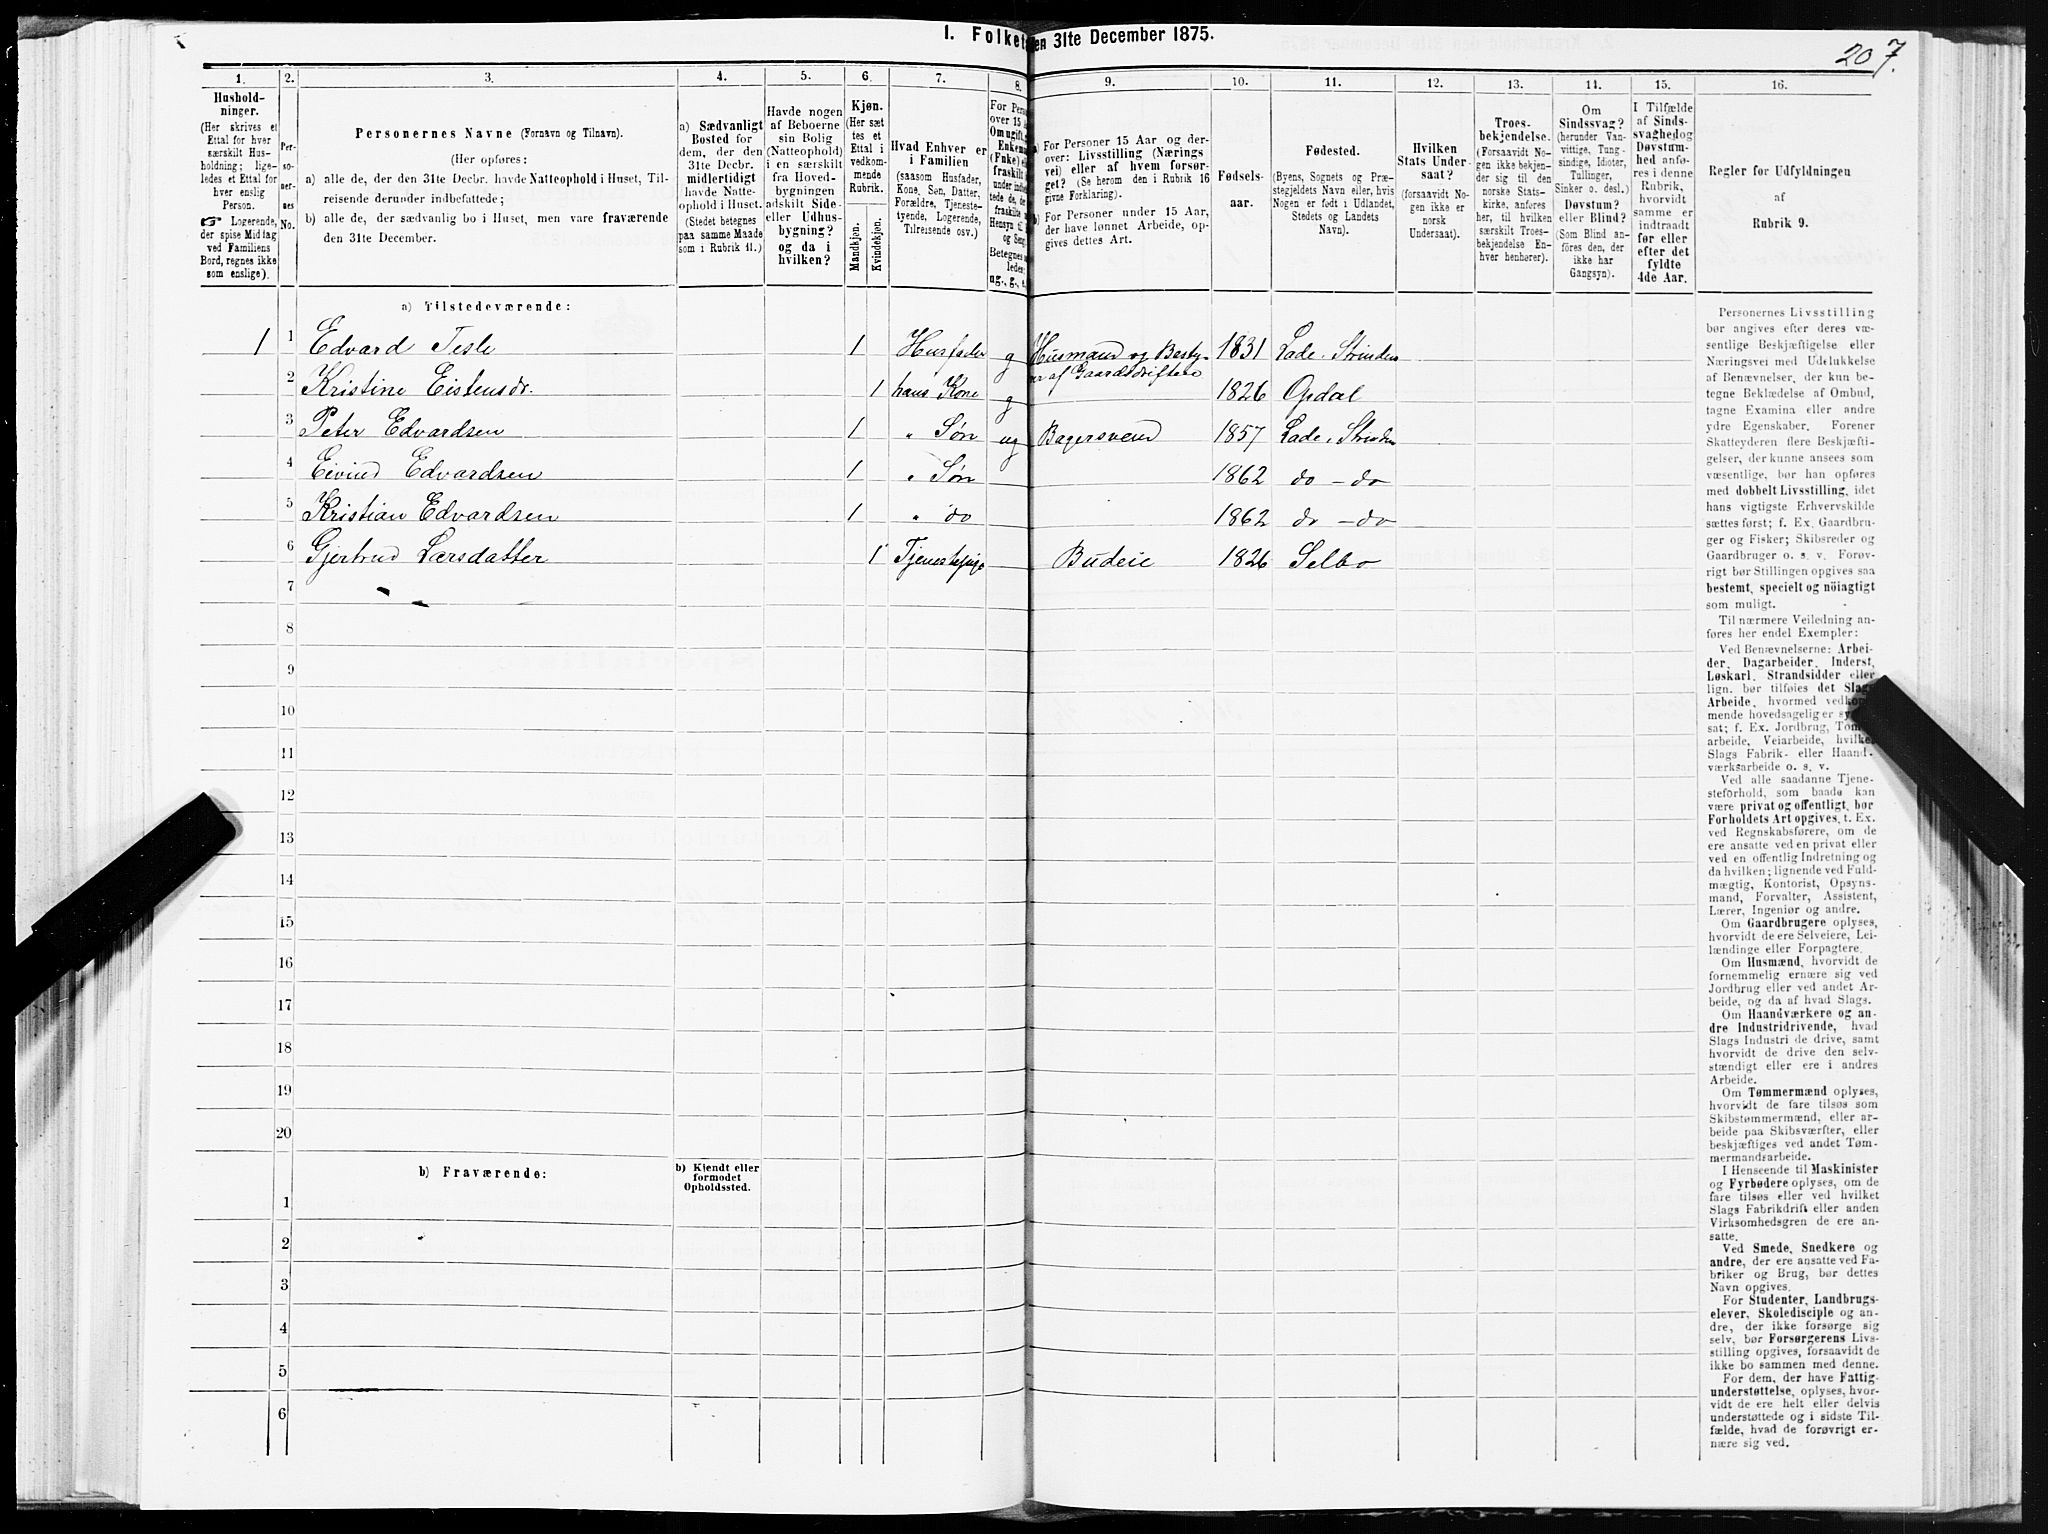 I. Folketæ
en 31te December 1875.
207.
1.
2.
3.
4.
5.
6.
7.
8.
9.
10.
11.
12.
13.
14.
15.
16.
Hushold-
ninger.
(Her skrives et
Ettal for hver
særskilt Hus-
holdning; lige-
ledes et Ettal for
hver enslig
Person.
☞ Logerende,
der spise Middag
ved Familiens
Bord, regnes ikke
som enslige).
Per-
so-
ner-
nes
No.
Personernes Navne (Fornavn og Tilnavn).
(Her opføres:
a) alle de, der den 31te Decbr. havde Natteophold i Huset, Til-
reisende derunder indbefattede;
b) alle de, der sædvanlig bo i Huset, men vare fraværende
den 31te December.
a) Sædvanligt
Bosted for
dem, der den
31te Decbr.
midlertidigt
havde Natte-
ophold i Huset.
(Stedet betegnes
paa samme Maade
som i Rubrik 11.)
Havde nogen
af Beboerne
sin Bolig
(Natteophold)
i en særskilt
fra Hoved-
bygningen
adskilt Side-
eller Udhus-
bygning?
og da i
hvilken?
Kjøn.
(Her sæt-
tes et
Ettal i
vedkom-
mende
Rubrik.
Mandkjøn.
Kvindekjøn.
Hvad Enhver er
i Familien
(saasom Husfader,
Kone, Søn, Datter,
Forældre, Tjeneste-
tyende, Logerende,
Tilreisende osv.)
For Pers
over 15
Om ugift,
Enkem
(Enke) e
fraskilt
under indbe
tede de, de
fraskilte
Hensyn til
og Seng
Betegnes
ledes:
ug., g., e
a) For Personer 15 Aar og der-
over: Livsstilling (Nærings
vei) eller af hvem forsør-
get? (Se herom den i Rubrik 16
givne Forklaring).
b) For Personer under 15 Aar,
der have lønnet Arbeide, op-
gives dettes Art.
Fødsels-
aar.
Fødested.
(Byens, Sognets og Præ-
stegjeldets Navn eller, hvis
Nogen er født i Udlandet,
Stedets og Landets
Navn).
Hvilken
Stats Under-
saat?
(forsaavidt No-
gen ikke er
norsk
Undersaat).
Troes-
bekjendelse.
(Forsaavidt No-
gen ikke bekjen-
der sig til den
norske Stats-
kirke, anføres
her, til hvilken
særskilt Troes-
bekjendelse En-
hver henhører).
Om
Sindssvag?
(herunder Van-
vittige, Tung-
sindige, Idioter,
Tullinger,
Sinker o. desl.)
Døvstum?
eller Blind?
(Som Blind an-
føres den, der
ikke har
Gangsyn).
I Tilfælde
af Sinds-
svaghed og
Døvstum-
hed anfø-
res i denne
Rubrik,
hvorvidt
samme er
indtraadt
før eller
efter det
fyldte
4de Aar.
Regler for Udfyldningen
af
Rubrik 9.
a) Tilstedeværende:
1 1 Edvard Tesle 1 Husfader g Husmand og Besty-
rer af Gaardsdriften 1831 Lade. Strinden
2 Kristine Eistensdr. 1 hans Kone g 1826 Opdal
3 Peter Edvardsen 1 " Søn ug Bagersvend 1857 Lade. Strinden
4 Eivind Edvardsen 1 " Søn 1862 do - do
5 Kristian Edvardsen 1 " do 1862 do - do
6 Gjertrud Larsdatter 1 Tjenestepige Budeie 1826 Selbo
7
8
9
10
11
12
13
14
15
16
17
18
19
20
b) Fraværende:
b) Kjendt eller
formodet
Opholdssted.
1
2
3
4
5
6
Personernes Livsstilling
bør angives efter deres væ-
sentlige Beskjæftigelse eller
Næringsvei med Udelukkelse
af Benævnelser, der kun be-
tegne Beklædelse af Ombud,
tagne Examina eller andre
ydre Egenskaber. Forener
Skatteyderen flere Beskjæfti-
gelser, der kunne ansees som
væsentlige, bør han opføres
med dobbelt Livsstilling, idet
hans vigtigste Erhvervskilde
sættes først; f. Ex. Gaardbru-
ger og Fisker; Skibsreder og
Gaardbruger o. s. v. Forøv-
rigt bør Stillingen opgives saa
bestemt, specielt og nöiagtigt
som muligt.
Til nærmere Veiledning an-
føres her endel Exempler:
Ved Benævnelserne: Arbei-
der, Dagarbeider, Inderst,
Løskarl, Strandsidder eller
lign. bør tilføies det Slags
Arbeide, hvormed vedkom-
mende hovedsagelig er syssel-
sat; f. Ex. Jordbrug, Tømmer-
arbeide, Veiarbeide, hvilket
Slags Fabrik- eller Haand-
værksarbeide o. s. v.
Ved alle saadanne Tjene-
steforhold, som baade kan
være privat og offentligt, bør
Forholdets Art opgives, t. Ex.
ved Regnskabsførere, om de
ere ansatte ved en privat eller
ved en offentlig Indretning og
da hvilken; lignende ved Fuld-
mægtig, Kontorist, Opsyns-
mand, Forvalter, Assistent,
Lærer, Ingeniør og andre.
Om Gaardbrugere oplyses,
hvorvidt de ere Selveiere, Lei-
lændinge eller Forpagtere.
Om Husmænd, hvorvidt de
fornemmelig ernære sig ved
Jordbrug eller ved andet Ar-
beide, og da af hvad Slags.
Om Haandværkere og an-
dre Industridrivende, hvad
Slags Industri de drive, samt
hvorvidt de drive den selv-
stændigt eller ere i andres
Arbeide.
Om Tømmermænd oplyses,
hvorvidt de fare tilsøs som
Skibstømmermænd, eller ar-
beide paa Skibsværfter, eller
beskjæftiges ved andet Tøm-
mermandsarbeide.
I Henseende til Maskinister
og Fyrbødere oplyses, om de
fare tilsøs eller ved hvilket
Slags Fabrikdrift eller anden
Virksomhedsgren de ere an-
satte.
Ved Smede, Snedkere og
andre, der ere ansatte ved Fa-
briker og Brug, bør dettes
Navn opgives.
For Studenter, Landbrugs-
elever, Skoledisciple og an-
dre, der ikke forsørge sig
selv, bør Forsørgerens Livs-
stilling opgives, forsaavidt de
ikke bo sammen med denne.
For dem, der have Fattig-
understøttelse, oplyses, hvor-
vidt de ere helt eller delvis
understøttede og i sidste Til-
fælde, hvad de forøvrigt er-
nære sig ved.